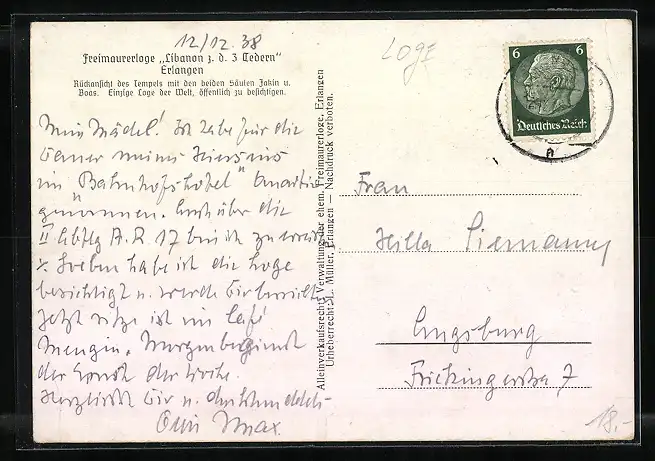 12/12 38
Loge
Freimaurerloge „Libanon z. d. 3 Cedern“
Erlangen
Rückansicht des Tempels mit den beiden Säulen Jakin u.
Boas. Einzige Loge der Welt, öffentlich zu besichtigen.
Mein Mädel! Ich habe für die
Dauer meines Hierseins
im "Bahnhofshotel" Quartier
genommen. Auch über die
II Abtlg A.R. 17 bin ich zu erreichen
Soeben habe ich die Loge
besichtigt u. werde Dir berichten
Jetzt sitze ich im Café
Mengin. Morgen beginnt
der Ernst der Woche.
Herzlichst Dir u. den
Dein Max.
Alleinverkaufsrecht: Verwaltung der ehem. Freimaurerloge, Erlangen
Urheberrecht: L. Müller, Erlangen — Nachdruck verboten.
6 6
Deutsches Reich
A
Frau
Hilla
Augsburg
7
18.-